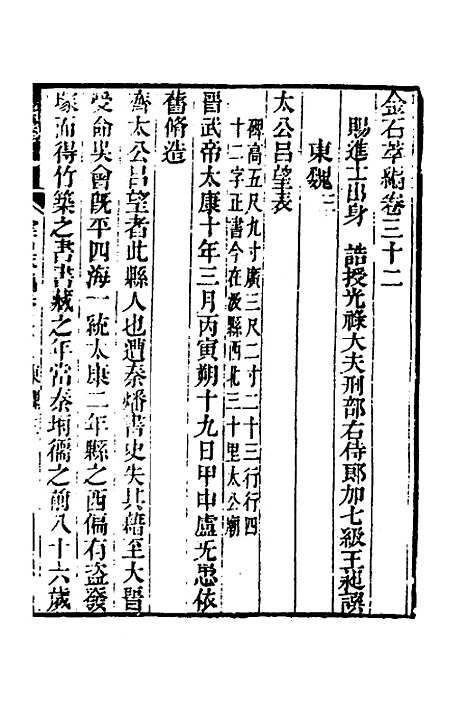 金石萃編卷三十二
賜進士出身 誥授光祿大夫刑部右侍郎加七級王昶譔
東魏三
太公呂望表
碑高五尺九寸廣三尺二寸二十三行行四
十二字正書今在汲縣西北三十里太公廟
晉武帝太康十年三月丙寅朔十九日甲申盧无忌依
舊脩造
齊太公呂望者此縣人也遭秦燔書史失其籍至大晉
受命吳會旣平四海一統太康二年縣之西偏有盜發
塚而得竹策之書書藏之年當秦坑儒之前八十六歲